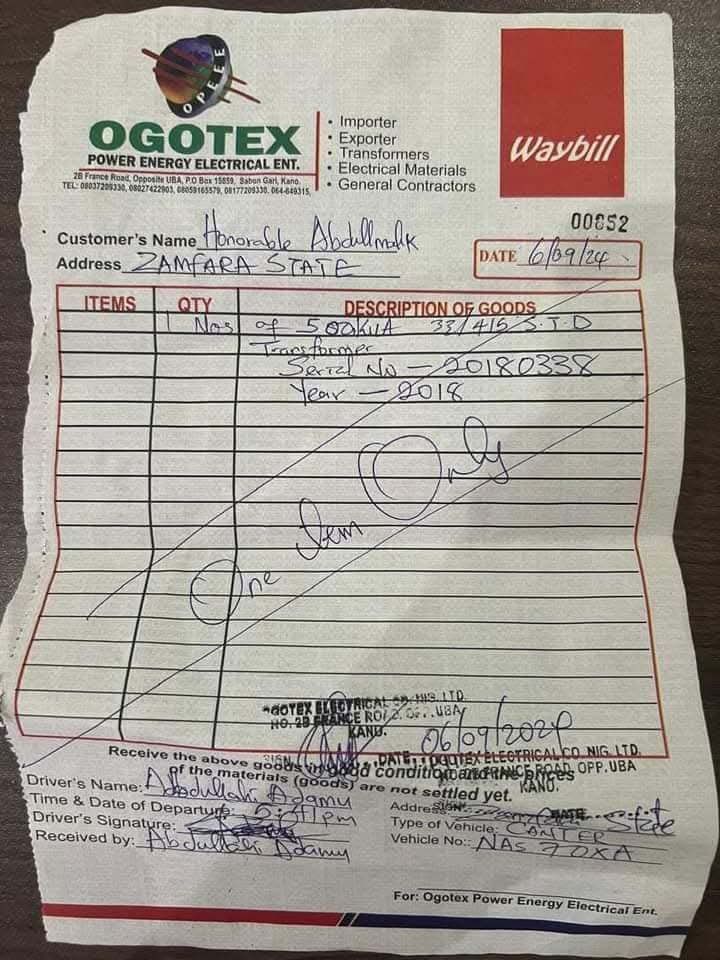 OPEEE
OGOTEX
POWER ENERGY ELECTRICAL ENT.
2B France Road, Opposite UBA, P.O Box 15859, Sabon Gari, Kano.
TEL: 08037209330, 08027422903, 08059165579, 08177209330, 064-649315,
• Importer
• Exporter
• Transformers
• Electrical Materials
• General Contractors
Waybill
00652
Customer's Name Honorable Abdullmalik
Address ZAMFARA STATE
DATE 6/09/24
ITEMS QTY DESCRIPTION OF GOODS
1 Nos of 500KVA 33/415 S.T.D
Transformer
Serial No - 20180338
Year - 2018
One Item Only
OGOTEX ELECTRICAL CO. NIG. LTD
NO. 2B FRANCE ROAD. OPP. UBA
KANO.
SIGN. DATE 06/09/2024
OGOTEX ELECTRICAL CO. NIG. LTD.
FRANCE ROAD, OPP. UBA
KANO.
SIGN. DATE
Receive the above goods in good condition
of the materials (goods) are not settled yet.
Driver's Name: Abdullahi Adamu
Time & Date of Departure:
Driver's Signature:
Received by: Abdullahi Adamu
Address: State
Type of Vehicle: CANTER
Vehicle No.: NAS 70XA
For: Ogotex Power Energy Electrical Ent.